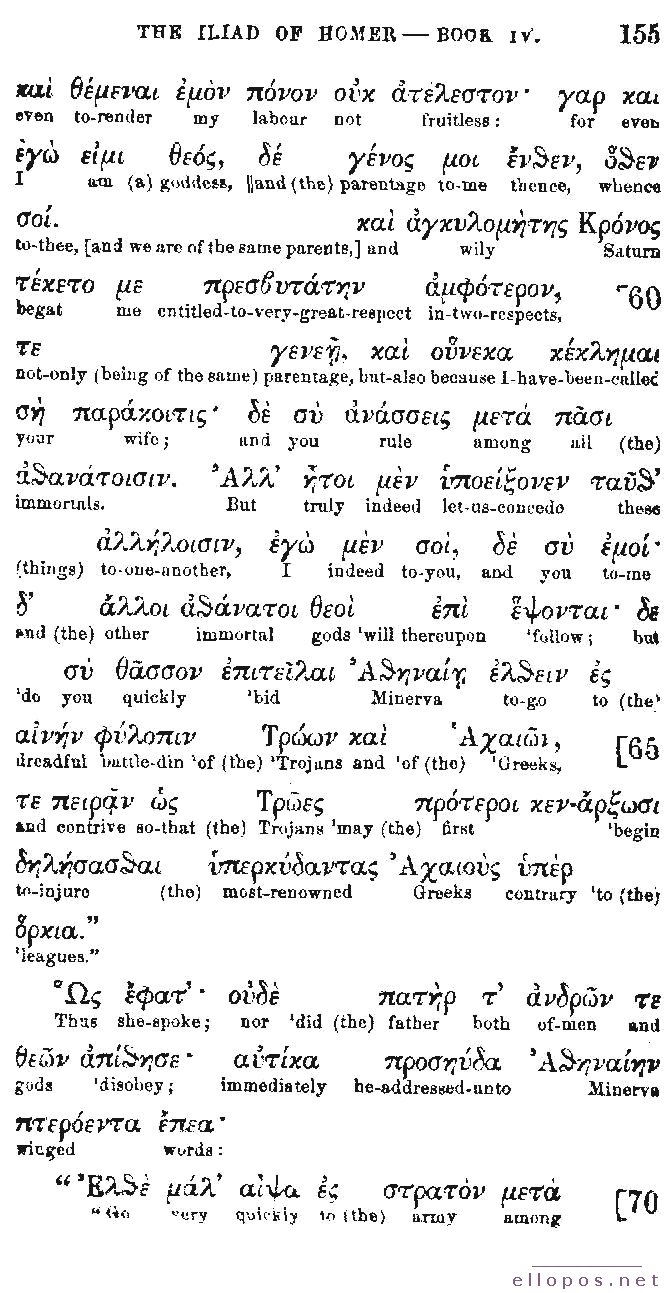 THE ILIAD OF HOMER — BOOK IV. 155
καὶ θέμεναι ἐμὸν πόνον οὐκ ἀτέλεστον· γαρ και
even to-render my labour not fruitless: for even
ἐγὼ εἰμι θεός, δέ γένος μοι ἔνϑεν, ὅϑεν
I am (a) goddess, ‖and (the) parentage to-me thence, whence
σοί. καὶ ἀγκυλομήτης Κρόνος
to-thee, [and we are of the same parents,] and wily Saturn
τέκετο με πρεσϐυτάτην ἀμφότερον, [60
begat me entitled-to-very-great-respect in-two-respects,
τε γενεῇ, καὶ οὕνεκα κέκλημαι
not-only (being of the same) parentage, but-also because I-have-been-called
σὴ παράκοιτις· δὲ σὺ ἀνάσσεις μετά πᾶσι
your wife; and you rule among all (the)
ἀϑανάτοισιν. Ἀλλ’ ἤτοι μὲν ὑποείξονεν ταῦϑ’
immortals. But truly indeed let-us-concede these
ἀλλήλοισιν, ἐγὼ μὲν σοὶ, δὲ σὺ ἐμοί·
(things) to-one-another, I indeed to-you, and you to-me
δ’ ἄλλοι ἀϑάνατοι θεοὶ ἐπὶ ἕψονται· δε
and (the) other immortal gods 'will thereupon 'follow; but
σὺ θᾶσσον ἐπιτεῖλαι Ἀϑηναίῃ ἐλϑειν ἐς
'do you quickly 'bid Minerva to-go to (the'
αἰνήν φύλοπιν Τρώων καὶ Ἀχαιῶν, [65
dreadful battle-din 'of (the) 'Trojans and 'of (the) 'Greeks,
τε πειρᾷν ὡς Τρῶες πρότεροι κεν-ἄρξωσι
and contrive so-that (the) Trojans 'may (the) first 'begin
δηλήσασϑαι ὑπερκύδαντας Ἀχαιοὺς ὑπὲρ
to-injure (the) most-renowned Greeks contrary 'to (the)
ὅρκια.”
'leagues.”
Ὣς ἔφατ’· οὐδὲ πατὴρ τ’ ἀνδρῶν τε
Thus she-spoke; nor 'did (the) father both of-men and
θεῶν ἀπίϑησε· αὐτίκα προσηύδα Ἀϑηναίην
gods 'disobey; immediately he-addressed-unto Minerva
πτερόεντα ἔπεα·
winged words:
“ Ἐλϑὲ μάλ’ αἶψα ἐς στρατὸν μετὰ [70
“Go very quickly to (the) army among
ellopos.net